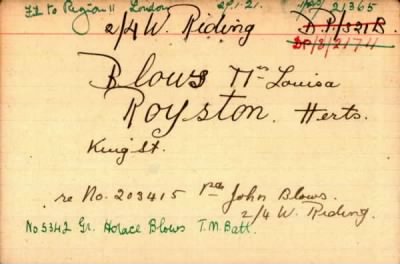 F2 to Region 11 London 29.1.21. 21365
2/4 W. Riding D.P./321B.
DP/3/21711
Blows Mrs Louisa
Royston. Herts.
King St.
re No. 203415 pte John Blows.
2/4 W. Riding.
No 5342 Gr. Horace Blows T.M. Batt.